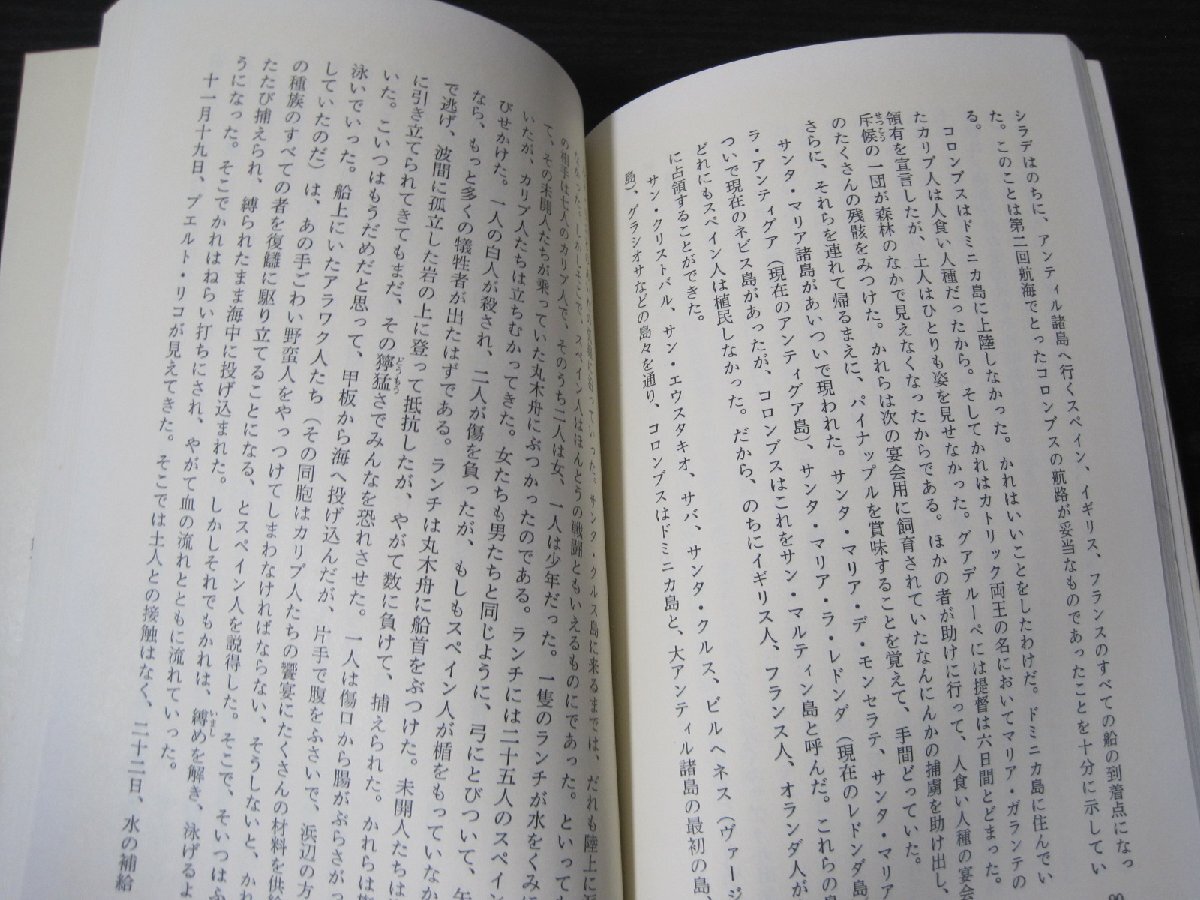 シラデはのちに、アンティル諸島へ行くスペイン、イギリス、フランスのすべての船の到着点になっ
た。このことは第二回航海でとったコロンブスの航路が妥当なものであったことを十分に示してい
る。
コロンブスはドミニカ島に上陸しなかった。かれはいいことをしたわけだ。ドミニカ島に住んでい
たカリブ人は人食い人種だったから。そしてかれはカトリック両王の名においてマリア・ガランテの
領有を宣言したが、土人はひとりも姿を見せなかった。グアデルーペには提督は六日間とどまった。
斥候の一団が森林のなかで見えなくなったからである。ほかの者が助けに行って、人食い人種の宴会
のたくさんの残骸をみつけた。かれらは次の宴会用に飼育されていたなんにんかの捕虜を助け出し、
さらに、それらを連れて帰るまえに、パイナップルを賞味することを覚えて、手間どっていた。
サンタ・マリア諸島があいついで現われた。サンタ・マリア・デ・モンセラテ、サンタ・マリア・
ラ・アンティグア（現在のアンティグア島）、サンタ・マリア・ラ・レドンダ（現在のレドンダ島
ついで現在のネビス島があったが、コロンブスはこれをサン・マルティン島と呼んだ。これらの島
どれにもスペイン人は植民しなかった。だから、のちにイギリス人、フランス人、オランダ人が
に占領することができた。
サン・クリストバル、サン・エウスタキオ、サバ、サンタ・クルス、ビルヘネス（ヴァージ
島）、グラシオサなどの島々を通り、コロンブスはドミニカ島と、大アンティル諸島の最初の島、
90
サンタ・クルス島に来るまでは、だれも陸上に
の相手は七人のカリブ人で、そのうち二人は女、一人は少年だった。一隻のランチが水をくみに
て、その未開人たちが乗っていた丸木舟にぶつかったのである。ランチには二十五人のスペイン
いたが、カリブ人たちは立ちむかってきた。女たちも男たちと同じように、弓にとびついて、矢
びせかけた。一人の白人が殺され、二人が傷を負ったが、もしもスペイン人が楯をもっていなか
なら、もっと多くの犠牲者が出たはずである。ランチは丸木舟に船首をぶつけた。未開人たちは
で逃げ、波間に孤立した岩の上に登って抵抗したが、やがて数に負けて、捕えられた。かれらは
に引き立てられてきてもまだ、その獰猛さでみんなを恐れさせた。一人は傷口から腸がぶらさがっ
いた。こいつはもうだめだと思って、甲板から海へ投げ込んだが、片手で腹をふさいで、浜辺の方
泳いでいった。船上にいたアラワク人たち（その同胞はカリブ人たちの饗宴にたくさんの材料を供給
していたのだ）は、あの手ごわい野蛮人をやっつけてしまわなければならない、そうしないと、かれ
の種族のすべての者を復讐に駆り立てることになる、とスペイン人を説得した。そこで、そいつはふ
たたび捕えられ、縛られたまま海中に投げ込まれた。しかしそれでもかれは、縛めを解き、泳げるよ
うになった。そこでかれはねらい打ちにされ、やがて血の流れとともに流れていった。
十一月十九日、プエルト・リコが見えてきた。そこでは土人との接触はなく、二十二日、水の補給